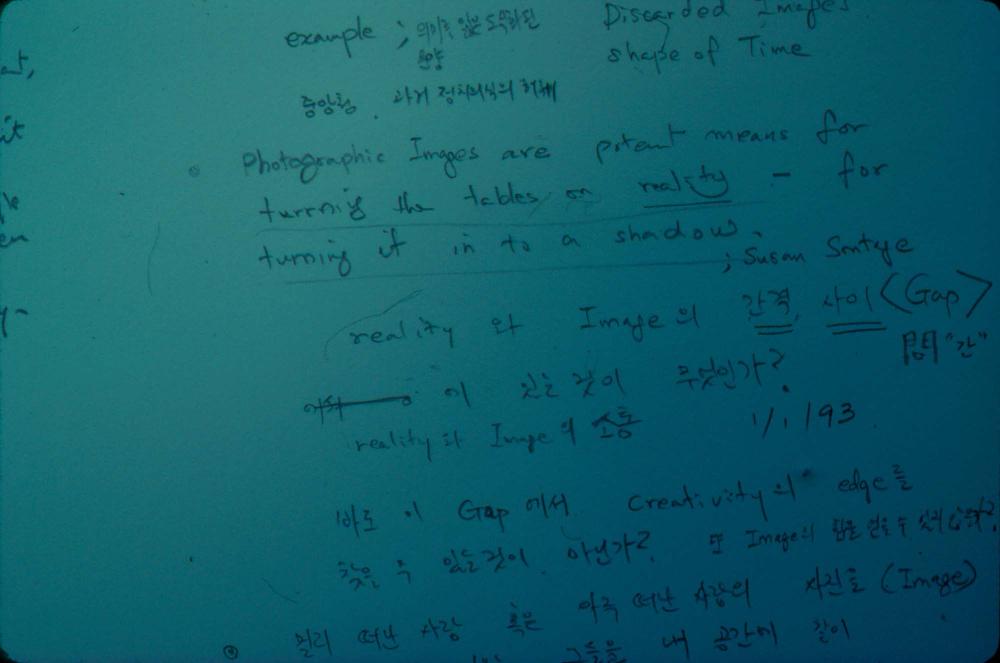 example ; 의미를 잃은
Discarded Images
모양
shape of Time
중앙청. 과거 정치의식의 허폐
at,
it
Photographic Images are potent means for
turrning the tables on reality – for
turning it in to a shadow.
; Susan Sontge
en
reality 와 Image의 간격, 사이 <Gap>
間 "간"
에 있는 것이 무엇인가?
reality와 Image의 소통 1/1/93
바로 이 Gap 에서 Creativity의 edge를
찾을 수 있는 것이 아닌가? 또 Image의 힘을 얻을 수
멀리 떠난 사람 혹은 아주 떠난 사람의 사진으로 (Image)
그들을 내 공간에 같이